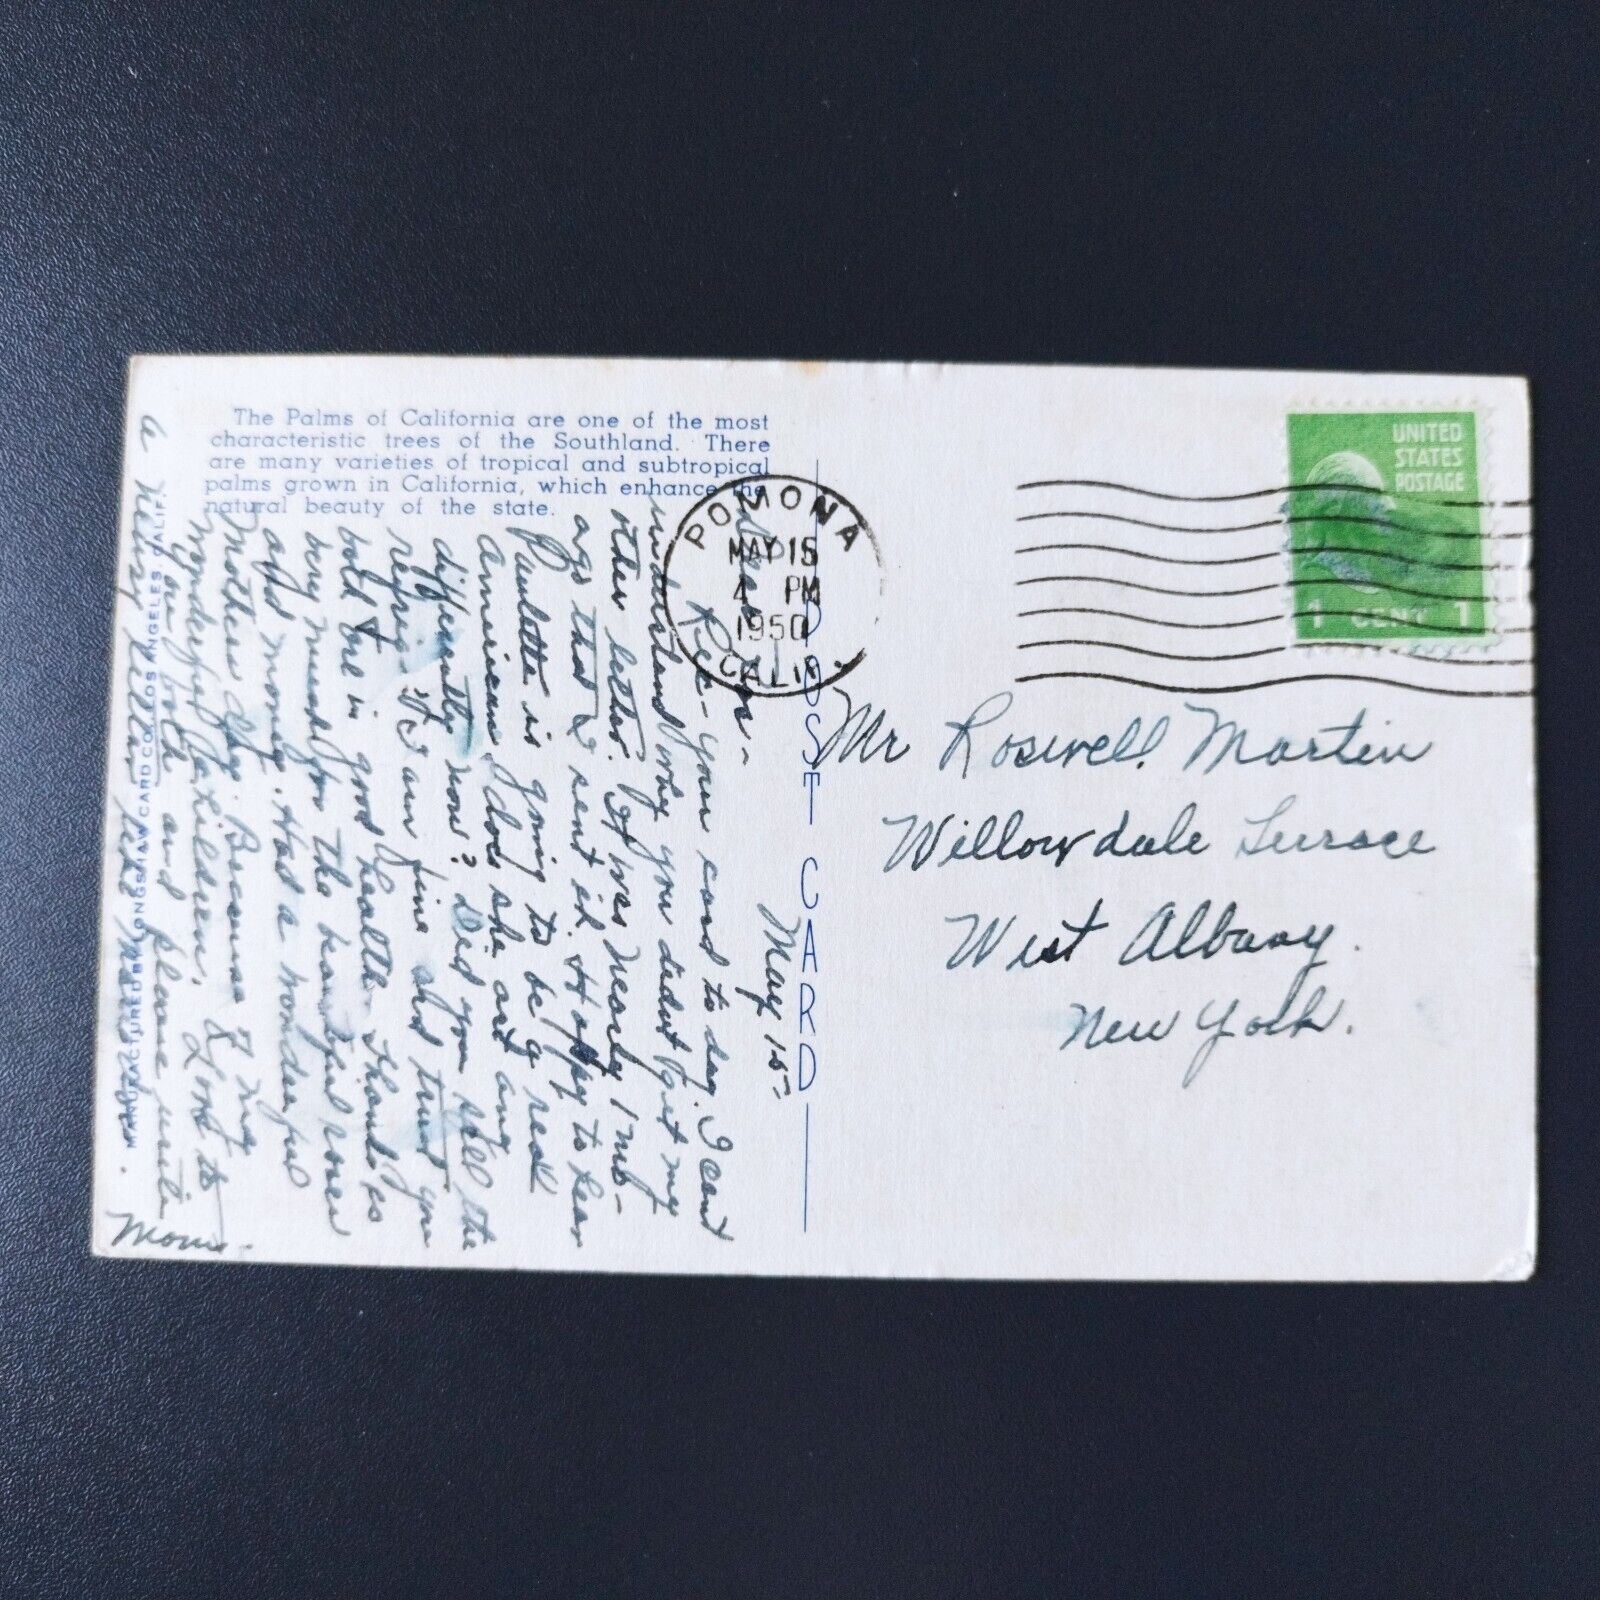 The Palms of California are one of the most
characteristic trees of the Southland. There
are many varieties of tropical and subtropical
palms grown in California, which enhance the
natural beauty of the state.
POMONA
MAY 15
4 PM
1950
CALIF.
UNITED
STATES
POSTAGE
1 CENT 1
POST CARD
Mr Roswell Martin
Willowdale Terrace
West Albany.
New York.
May 15-
Dear
Rec- your card to day. I cant
understand why you didnt get my
other letter. It was nearly 1 mo-
ago that I sent it. Happy to hear
Paulette is going to be a real
American, does she act any
differently now? Did you sell the
refrig- I am fine and trust you
both are in good health. Thanks
very much for the beautiful
and money. Had a wonderful
Mothers day. Because of my
wonderful children. Love to
you both and please write
a newsy letter
Mom.
MANUFACTURED BY LONGSHAW CARD CO., LOS ANGELES, CALIF.